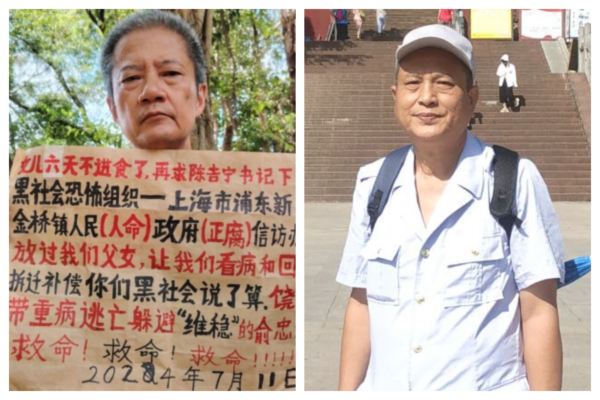 女儿六天不进食了,再求陈吉宁书记下
黑社会恐怖组织—上海市浦东新
金桥镇人民(人命)政府(正腐)信访办
放过我们父女,让我们看病和回
拆迁补偿你们黑社会说了算.饶
带重病逃亡躲避"维稳"的俞忠
救命!救命!救命!!!!!
2024年7月11日